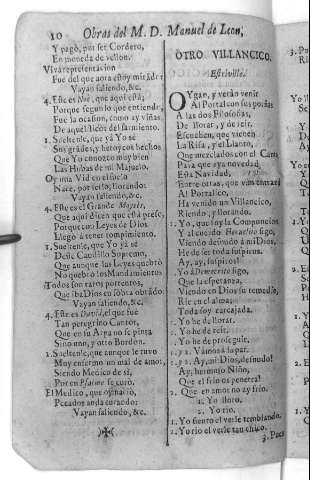 10 Obras del M. D. Manuel de Leon,
Y pagò, por ser Cordero,
En moneda de vellon.
Viva representacion
Fue del que aora estoy mirãdo:
Vayan saliendo, &c.
4. Este es Noè, que aqui està;
Porque segun lo que entiendo,
Fue la ocasion, como ay viñas
De aquel
1. Sueltenle, que yà Yo sè
Sus grades, y heroycos hechos
Que Yo conozco muy bien
Las Hubas de mi Majuelo.
Oy una Vid en el suelo
Nace, por serlo, llorando:
Vayan saliendo, &c.
4. Este es el Grande Moysès,
Que aqui dicen que està preso,
Porque con Leyes de Dios
Llegò à tener cumplimiento.
1. Sueltenle, que Yo yà sè
Desse Caudillo Supremo,
Que aunque las Leyes quebrò
No quebrò los Mandamientos
Todos son raros portentos,
Que iba Dios en sõbra obrãdo:
Vayan saliendo, &c.
4. Este es David, el que fuè
Tan peregrino Cantor,
Que en su Arpa no se pinta
Sino uno, y otro Bordon.
1. Sueltenle, que aunque le tuvo
Muy enfermo un mal de amor,
Siendo Medico de si,
Por en Psalmo se curò.
El Medico, que
Pecados anda curando:
Vayan saliendo, &c.
OTRO VILLANCICO.
Estrivillo.
OYgan, y verán venir
Al Portal con sus porfias
A las dos Filosofias,
De llorar, y de reir.
Escuchen, que vienen
La Risa, y el Llanto,
Que mezclados con el Canto
Para que aya novedad
Esta Navidad,
Entre otras, que vinieron
Al Portalico,
Ha venido un Villancico,
Riendo, y llorando.
1. Yo, que soy la Compuncion
Y al cuerdo Heraclito sigo,
Viendo desnudo à mi Dios,
He de ser toda suspiros.
Ay, ay, suspiros!
2. Yo à Democrito sigo,
Que la esperança,
Viendo en Dios su remedio,
Rie en el alma;
Toda soy carcajada.
1. Yo he de llorar.
2. Yo he de reir.
1. Yo he de proseguir,
1. y 2. Vamos à la par.
1. y 2. Ay, mi Dios, desnudo!
Ay, hermoso Niño,
Que el frio os penetra!
2. Que en amos no ay frio.
1. Yo lloro,
2. Yo rio.
1. Yo siento el verle temblando.
2. Yo rio el verle tan chico.
3. Pues